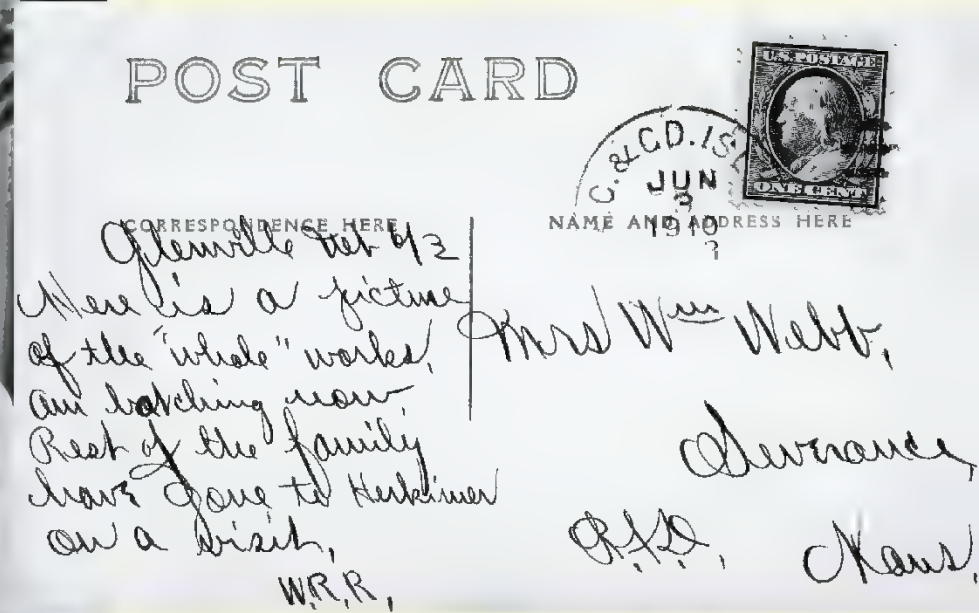 POST CARD
U.S. POSTAGE
ONE CENT
C. & G.D. ISL
JUN
3
1910
CORRESPONDENCE HERE
NAME AND ADDRESS HERE
Glenville Neb 6/2
Here is a picture
of the "whole" works,
am batching now
Rest of the family
have gone to Herkimer
on a visit,
W.R.R,
Mrs Wm Webb,
Severance,
R.F.D, Kans,